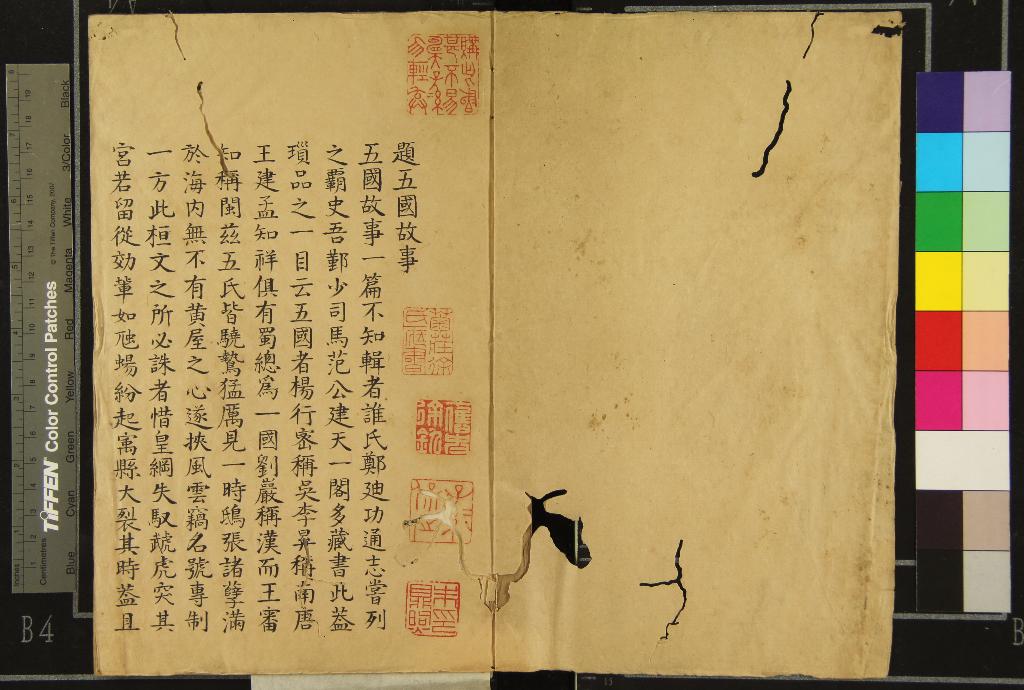 題五國故事
五國故事一篇不知輯者誰氏鄭廸功通志嘗列
之覇史吾鄞少司馬范公建天一閣多藏書此葢
瑣品之一目云五國者楊行宻稱吳李昪稱南唐
王建孟知祥俱有蜀總爲一國劉巖稱漢而王審
知稱閩茲五氏皆驍驁猛厲見一時鴟張諸孽滿
於海内無不有黄屋之心遂挾風雲竊名號專制
一方此桓文之所必誅者惜皇綱失馭虣虎突其
宮若留從効軰如虺蝪紛起寓縣大裂其時葢且
購此書
甚不易
遺子孫
勿輕棄
菊莊徐
氏藏書
朱氏
TIFFEN Color Control Patches
© The Tiffen Company, 2007
Inches
Centimetres
Blue
Cyan
Green
Yellow
Red
Magenta
White
3/Color
Black
B4